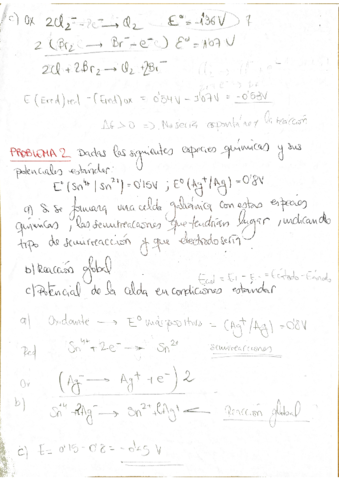 c) Ox 2Cl₂⁻ - 2e⁻ → Cl₂ E° = -1'36 V
2 (Br₂ → Br⁻ - e⁻) E° = 1'07 V
2Cl + 2Br₂ → Cl₂ 2Br⁻
E (Ered)red - (Ered)ox = 0'54V - 1'07V = -0'53V
ΔG > 0 => No será espontánea la reacción
PROBLEMA 2. Dadas las siguientes especies químicas y sus
potenciales estándar:
E°(Sn⁴⁺/Sn²⁺) = 0'15V ; E°(Ag⁺/Ag) = 0'8V
a) Si se formara una celda galvánica con estas especies
químicas, las semirreacciones que tendrían lugar, indicando
tipo de semirreacción y que electrodo sería
b) Reacción global
c) Potencial de la celda en condiciones estándar
a) → E° más positivo = (Ag⁺/Ag) = 0'8V
Red Sn⁴⁺ + 2e⁻ → Sn²⁺ semirreacciones
Ox (Ag⁻ → Ag⁺ + e⁻) 2
b) Sn⁴⁺ + 2Ag⁻ → Sn²⁺ + 2Ag⁺ ← Reacción global
c) E = 0'15 - 0'8 = V